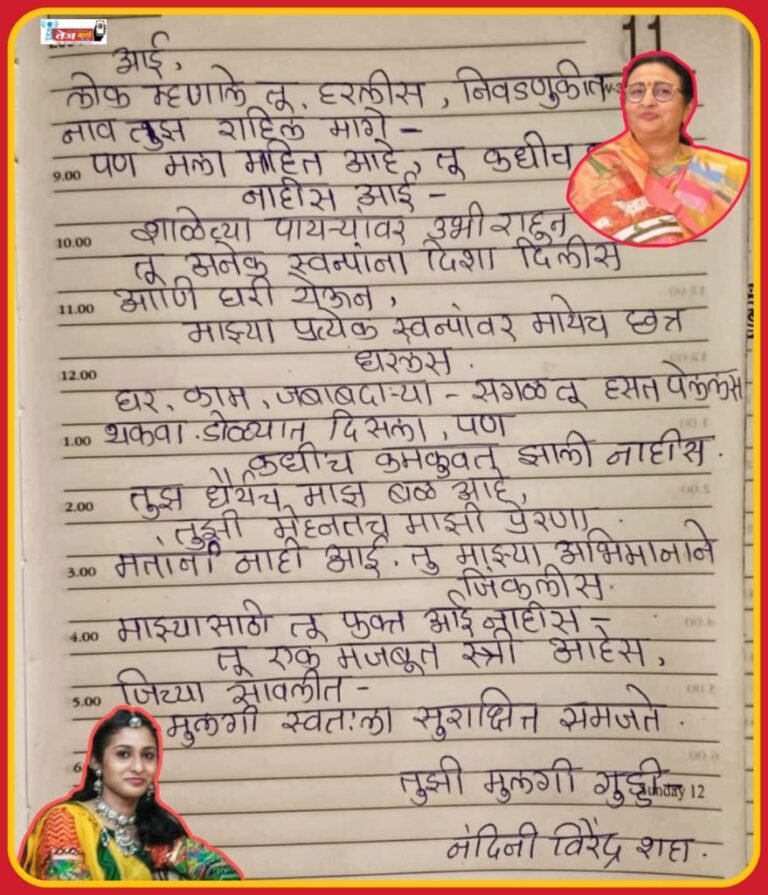 तेज वार्ता
11
आई,
लोक म्हणाले तू, हरलीस, निवडणुकीत
नाव तुझ राहिल मागे -
9.00 पण मला माहित आहे, तू कधीच
नाहीस आई -
10.00 शाळेच्या पायऱ्यांवर उभी राहून
तू अनेक स्वप्नांना दिशा दिलीस
11.00 आणि घरी येऊन,
माझ्या प्रत्येक स्वप्नांवर मायेच छत्र
धरलस.
12.00
घर, काम, जबाबदाऱ्या - सगळ तू हसत पेललस
1.00 थकवा डोळ्यात दिसला, पण
कधीच कमकुवत झाली नाहीस.
2.00 तुझ धैर्यच माझ बळ आहे,
तुझी मेहनतच माझी प्रेरणा.
3.00 मतांनी नाही आई. तु माझ्या अभिमानाने
जिंकलीस.
4.00 माझ्यासाठी तू फक्त आई नाहीस -
तू एक मजबूत स्त्री आहेस,
5.00 जिच्या सावलीत -
मुलगी स्वतःला सुरक्षित समजते.
6
तुझी मुलगी गुड्डी
Sunday 12
नंदिनी विरेंद्र शहा.